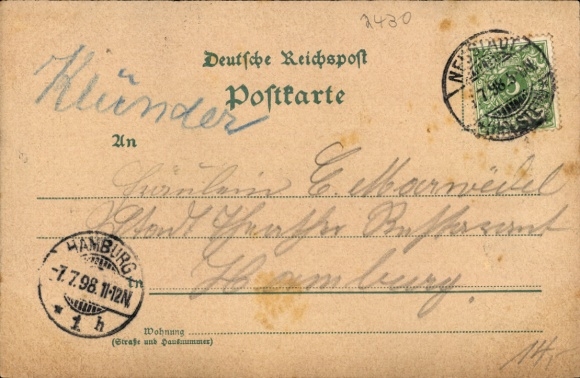 2430
Deutsche Reichspost
Postkarte
Klünder
NEUSTADT
7.98.5-
HOLSTEIN
5
An
Fräulein C. Marwedel
Stadt Theater Restaurant
Hamburg
HAMBURG
-7.7.98.11-12N.
* 1 h
Wohnung
(Straße und Hausnummer)
14,-